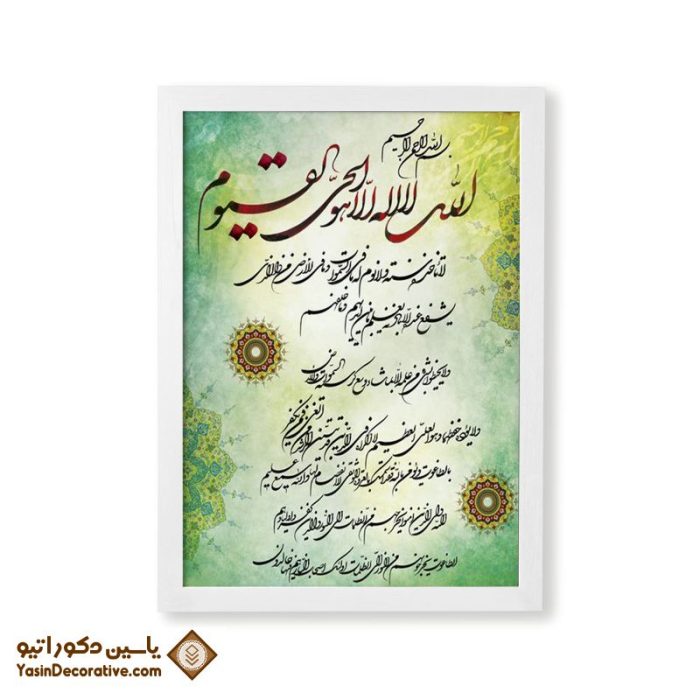 بسم الله الرحمن الرحیم
الله لا اله الا هو الحی القیوم
لا تاخذه سنة و لا نوم له ما فی السموات و ما فی الارض من ذا الذی
یشفع عنده الا باذنه یعلم ما بین ایدیهم و ما خلفهم
و لا یحیطون بشی من علمه الا بما شاء وسع کرسیه السموات و الارض
و لا یوده حفظهما و هو العلی العظیم لا اکراه فی الدین قد تبین الرشد من الغی فمن یکفر
بالطاغوت و یومن بالله فقد استمسک بالعروة الوثقی لا انفصام لها و الله سمیع علیم
الله ولی الذین امنوا یخرجهم من الظلمات الی النور و الذین کفروا اولیاوهم
الطاغوت یخرجونهم من النور الی الظلمات اولئک اصحاب النار هم فیها خالدون
یاسین دکوراتیو
YasinDecorative.com